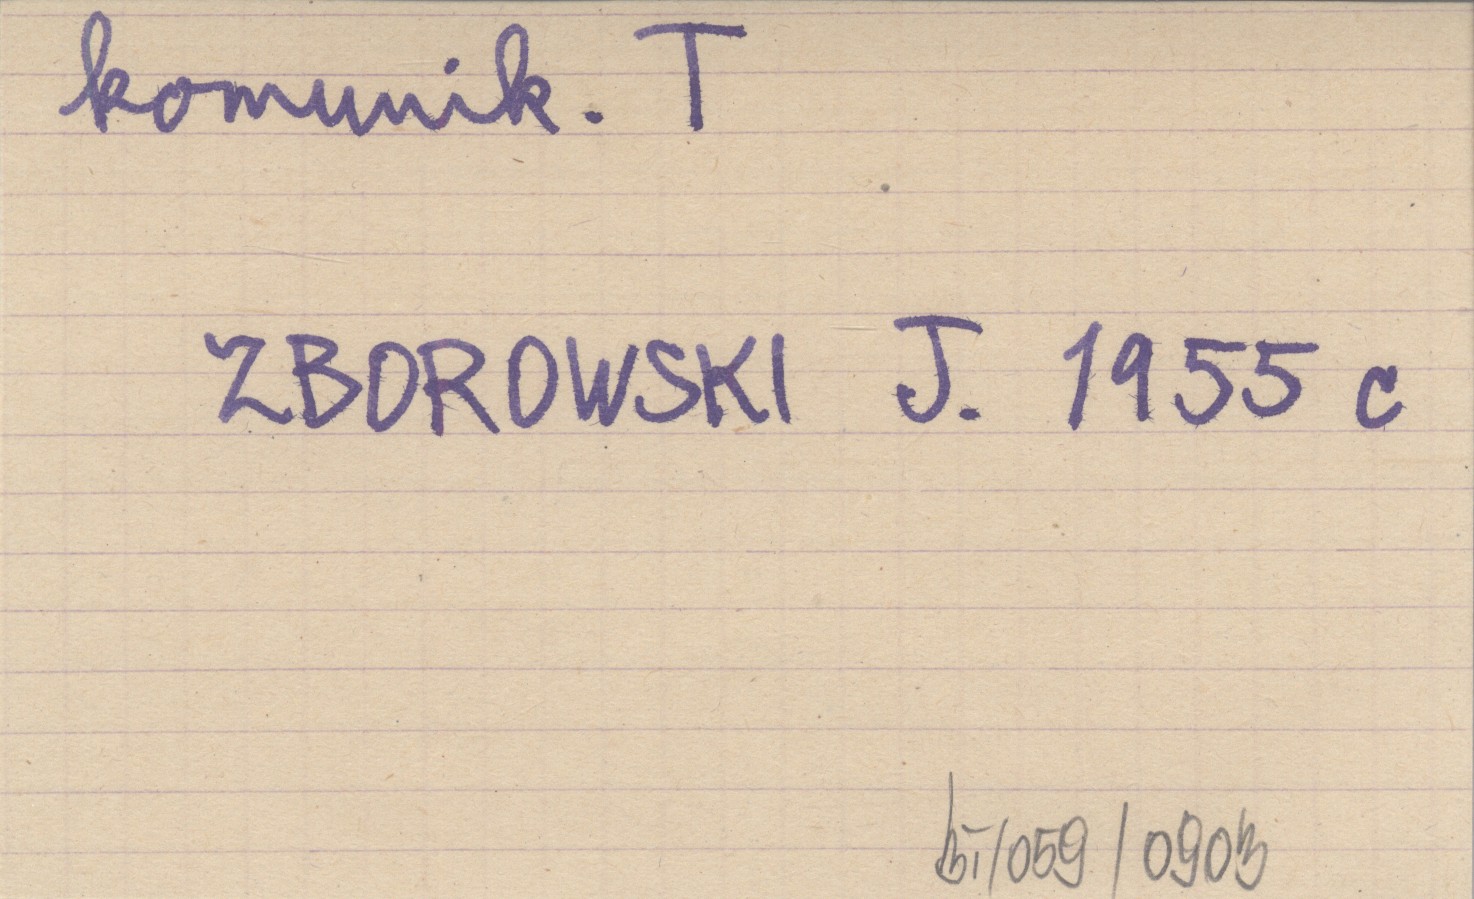 komunik. T
ZBOROWSKI J. 1955 c
/059/0903